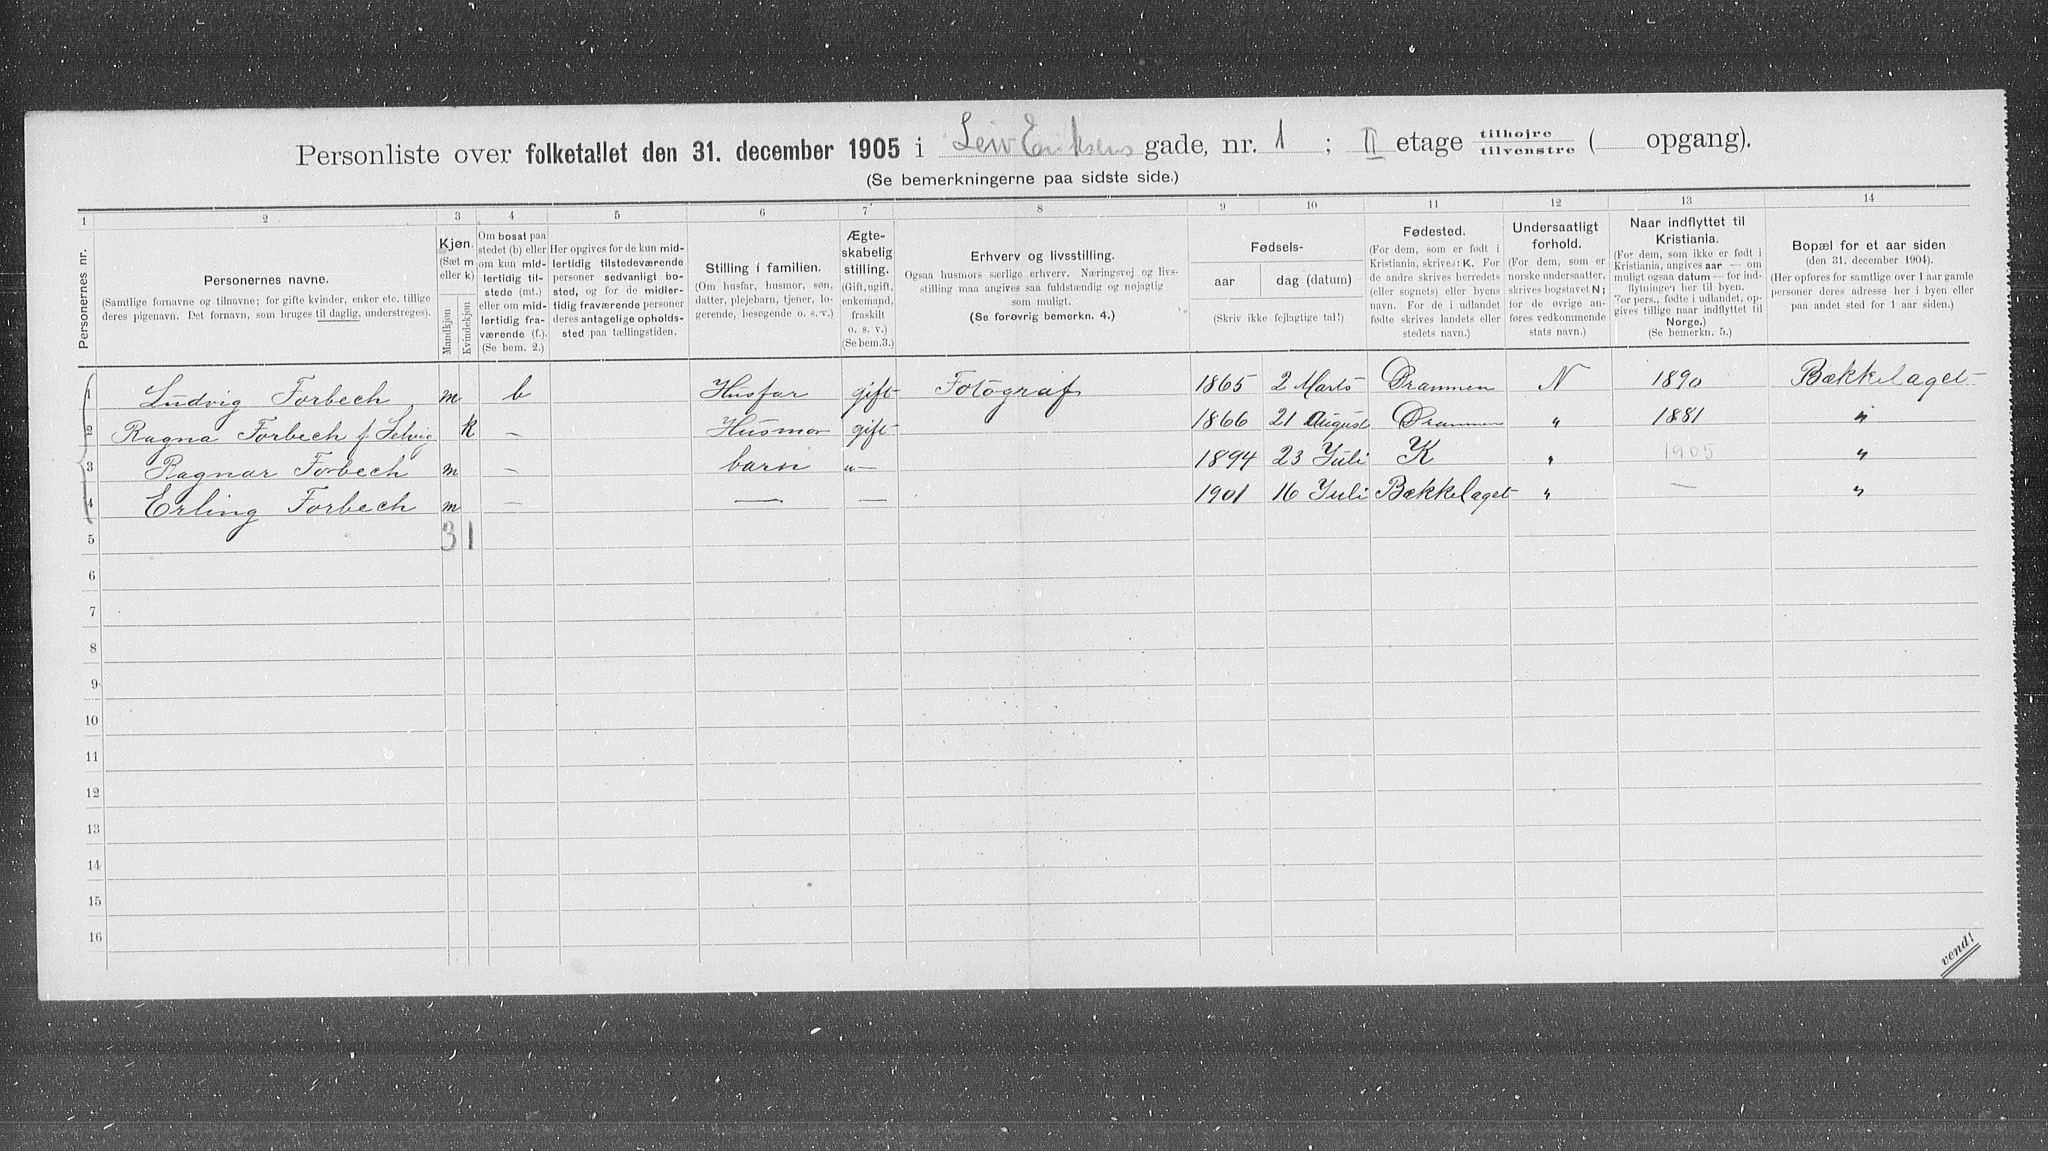 Personliste over folketallet den 31. december 1905 i Leiv Eriksens gade, nr. 1 ; II etage tilhøjre / tilvenstre ( opgang).
(Se bemerkningerne paa sidste side.)
1 2 3 4 5 6 7 8 9 10 11 12 13 14
Personernes nr.
Personernes navne.
(Samtlige fornavne og tilnavne; for gifte kvinder, enker etc. tillige
deres pigenavn. Det fornavn, som bruges til daglig, understreges).
Kjøn.
(Sæt m
eller k)
Mandkjøn
Kvindekjøn
Om bosat paa
stedet (b) eller
om kun mid-
lertidig til-
stede (mt.)
eller om mid-
lertidig fra-
værende (f.).
(Se bem. 2.)
Her opgives for de kun mid-
lertidig tilstedeværende
personer sedvanligt bo-
sted, og for de midler-
tidig fraværende personer
deres antagelige opholds-
sted paa tællingstiden.
Stilling i familien.
(Om husfar, husmor, søn,
datter, plejebarn, tjener, lo-
gerende, besøgende o. s. v.)
Ægte-
skabelig
stilling.
(Gift, ugift,
enkemand,
fraskilt
o. s. v.)
(Se bem.3.)
Erhverv og livsstilling.
Ogsaa husmors særlige erhverv. Næringsvej og livs-
stilling maa angives saa fuldstændig og nøjagtig
som muligt.
(Se forøvrig bemerkn. 4.)
Fødsels-
aar dag (datum)
(Skriv ikke fejlagtige tal!)
Fødested.
(For dem, som er født i
Kristiania, skrives: K. For
de andre skrives herredets
(eller sognets) eller byens
navn. For de i udlandet
fødte skrives landets eller
stedets navn.)
Undersaatligt
forhold.
(For dem, som er
norske undersaatter,
skrives bogstavet N;
for de øvrige an-
føres vedkommende
stats navn.)
Naar indflyttet til
Kristiania.
(For dem, som ikke er født i
Kristiania, angives aar — om
muligt ogsaa datum — for ind-
flytningen her til byen.
For pers., fødte i udlandet, op-
gives tillige naar indflyttet til
Norge.)
(Se bemerkn. 5.)
Bopæl for et aar siden
(den 31. december 1904).
(Her opføres for samtlige over 1 aar gamle
personer deres adresse her i byen eller
paa andet sted for 1 aar siden.)
1 Ludvig Forbech m b Husfar gift Fotograf 1865 2 Marts Drammen N 1890 Bækkelaget
2 Ragna Forbech f. Selvig k — Husmor gift 1866 21 August Drammen " 1881 "
3 Ragnar Forbech m — barn u— 1894 23 Juli K " 1905 "
4 Erling Forbech m — — — 1901 16 Juli Bækkelaget " — "
5 3 1
6
7
8
9
10
11
12
13
14
15
16
vend!